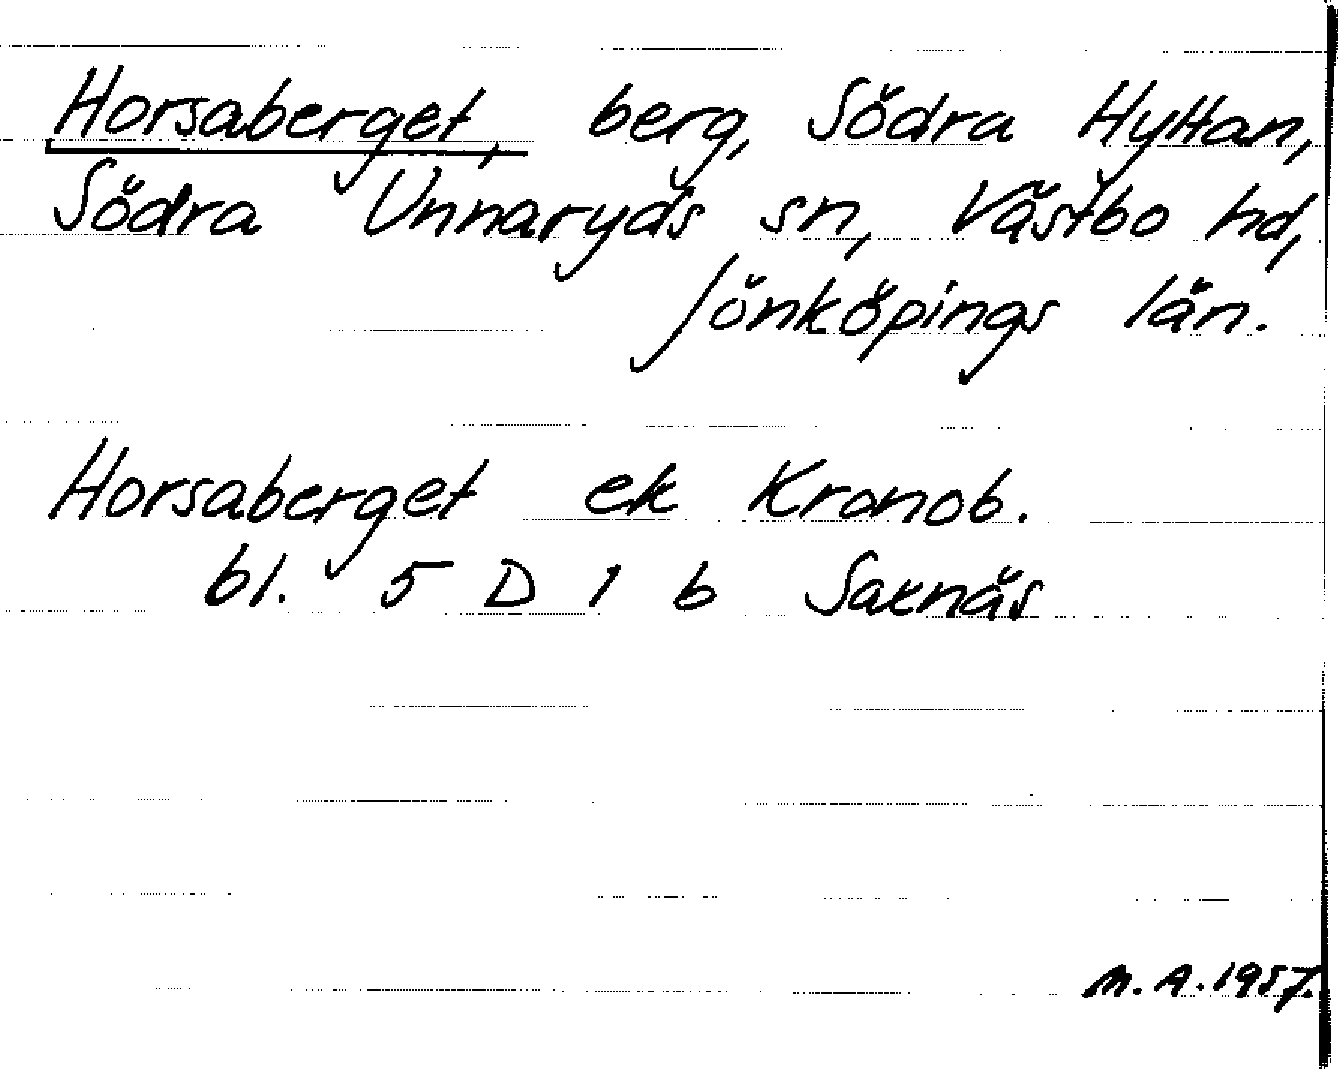 Horsaberget, berg, Södra Hyttan,
Södra Unnaryds sn, Västbo hd,
Jönköpings län.
Horsaberget ek Kronob.
bl. 5 D 1 b Saxnäs
M.A. 1957.